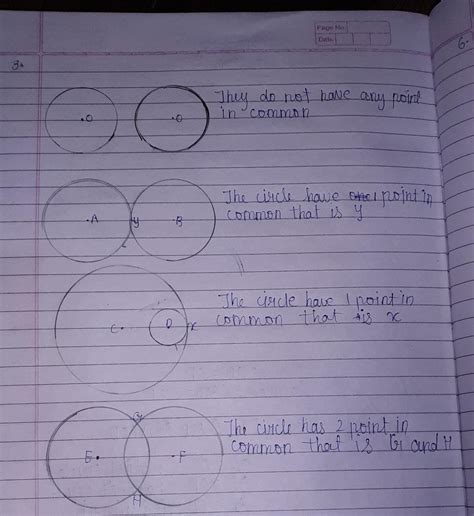 Page No.
Date
6.
3.
They do not have any point
in common
.O
.O
The circle have one 1 point in
common that is y
.A
y
.B
The circle have 1 point in
common that is x
C.
D
x
The circle has 2 point in
common that is G and H
G
E.
.F
H